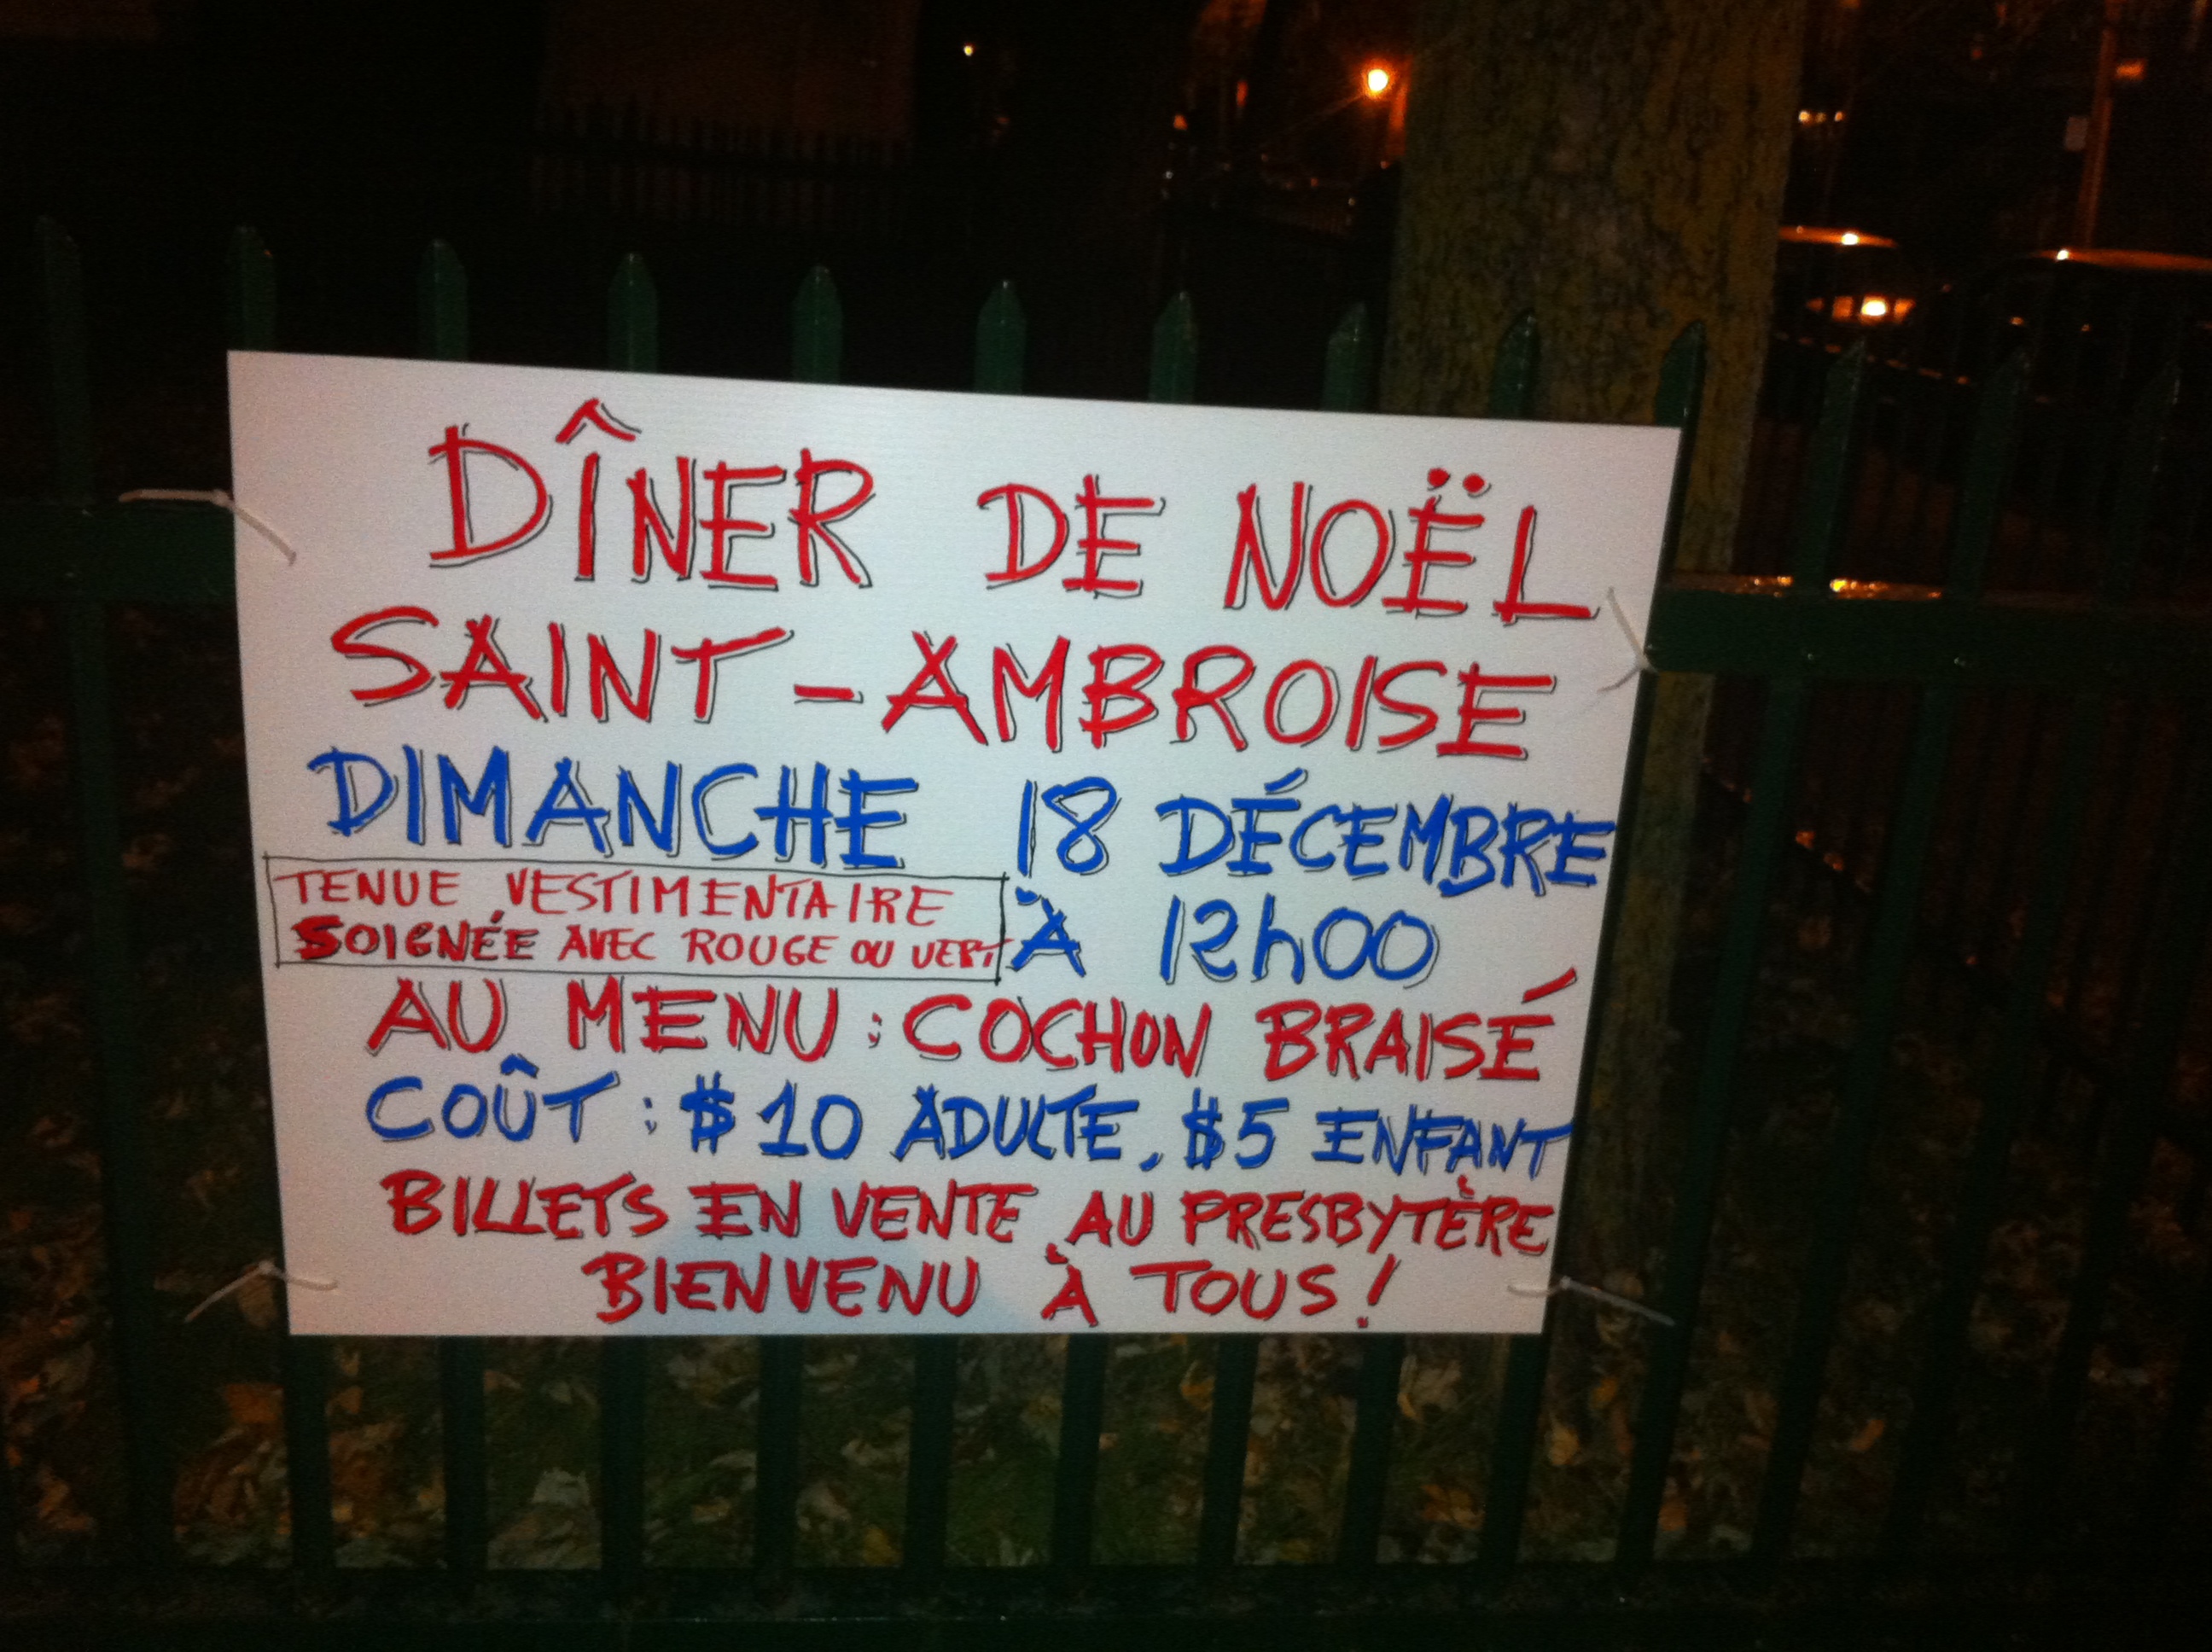 DÎNER DE NOËL
SAINT-AMBROISE
DIMANCHE 18 DÉCEMBRE
À 12h00
TENUE VESTIMENTAIRE
SOIGNÉE AVEC ROUGE OU VERT
AU MENU : COCHON BRAISÉ
COÛT : $10 ADULTE, $5 ENFANT
BILLETS EN VENTE AU PRESBYTÈRE
BIENVENU À TOUS !